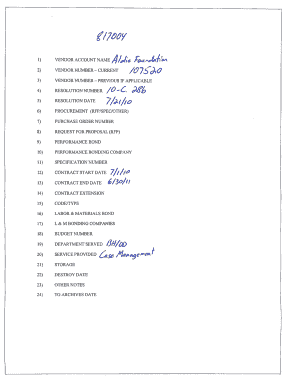 817004
1) VENDOR ACCOUNT NAME Aldie Foundation
2) VENDOR NUMBER – CURRENT 107520
3) VENDOR NUMBER – PREVIOUS IF APPLICABLE
4) RESOLUTION NUMBER 10-C. 286
5) RESOLUTION DATE 7/21/10
6) PROCUREMENT (RFP/SPEC/OTHER)
7) PURCHASE ORDER NUMBER
8) REQUEST FOR PROPOSAL (RFP)
9) PERFORMANCE BOND
10) PERFORMANCE BONDING COMPANY
11) SPECIFICATION NUMBER
12) CONTRACT START DATE 7/1/10
13) CONTRACT END DATE 6/30/11
14) CONTRACT EXTENSION
15) CODE/TYPE
16) LABOR & MATERIALS BOND
17) L & M BONDING COMPANIES
18) BUDGET NUMBER
19) DEPARTMENT SERVED BH/DD
20) SERVICE PROVIDED Case Management
21) STORAGE
22) DESTROY DATE
23) OTHER NOTES
24) TO ARCHIVES DATE